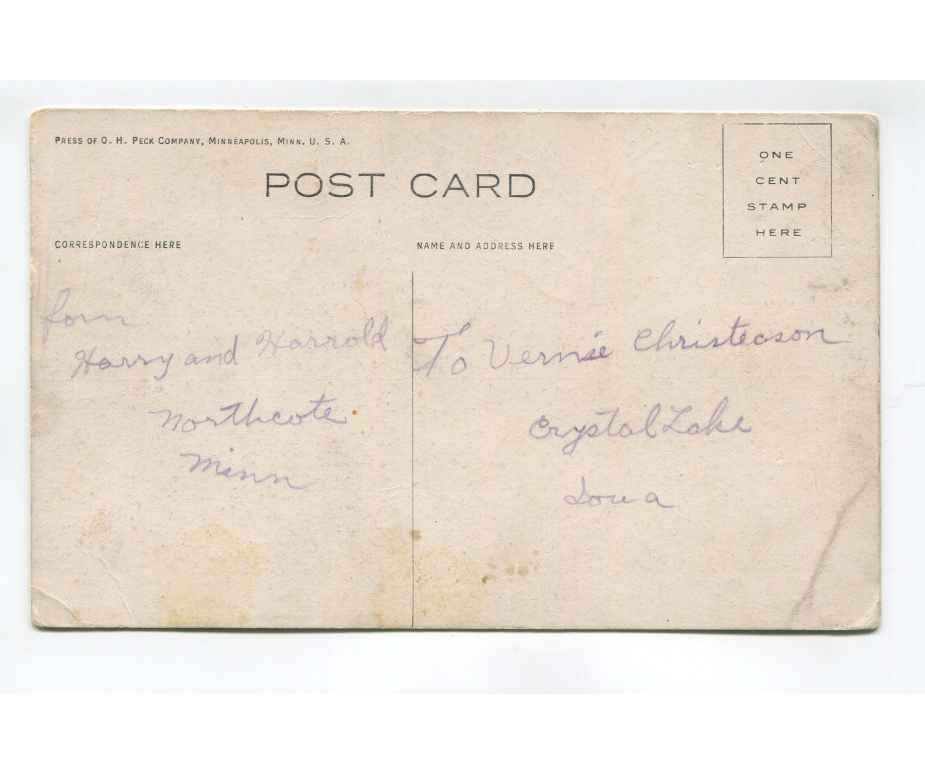 PRESS OF O. H. PECK COMPANY, MINNEAPOLIS, MINN. U. S. A.
POST CARD
ONE
CENT
STAMP
HERE
CORRESPONDENCE HERE
NAME AND ADDRESS HERE
form
Harry and Harrold
Northcote
Minn
To Vernie Christeason
Crystal Lake
Iowa